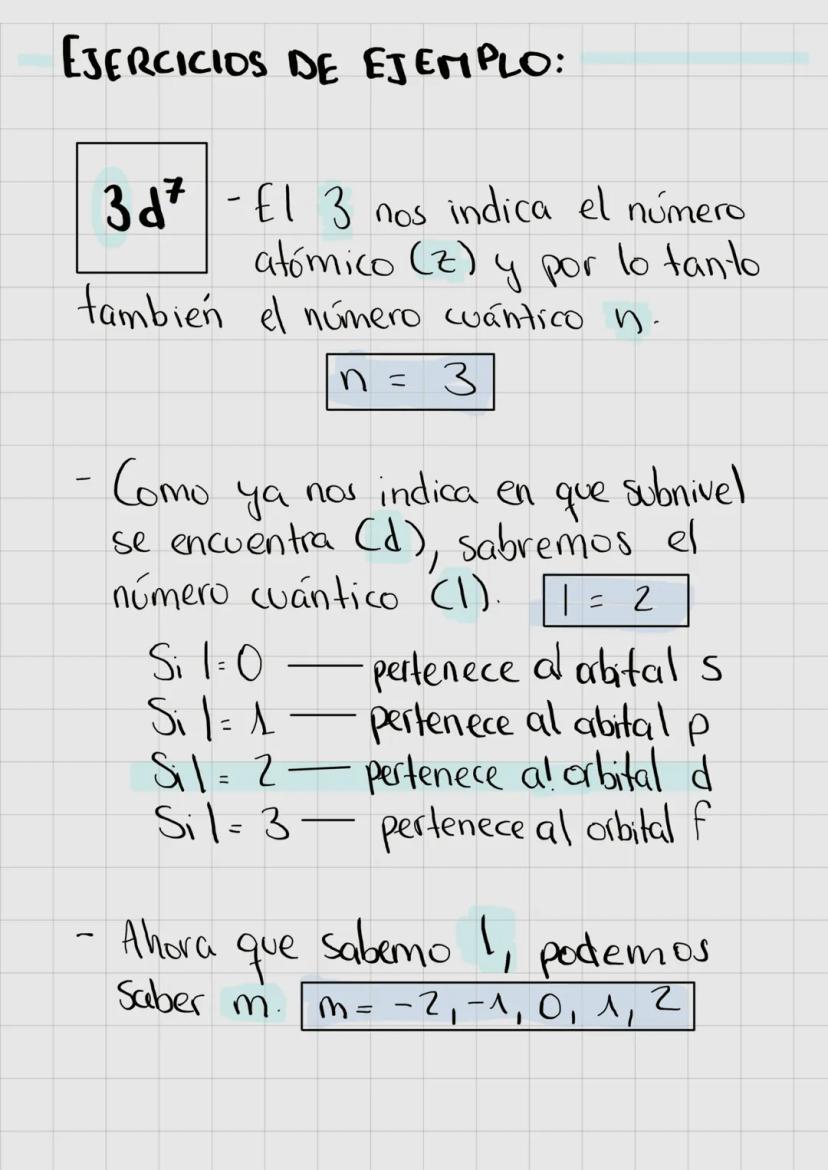 EJERCICIOS DE EJEMPLO:
3d⁷
- El 3 nos indica el número
atómico (z) y por lo tanto
también el número cuántico n.
n = 3
- Como ya nos indica en que subnivel
se encuentra (d), sabremos el
número cuántico (l).
l = 2
Si l=0 — pertenece al orbital s
Si l= 1 — pertenece al orbital p
Si l= 2 — pertenece al orbital d
Si l= 3 — pertenece al orbital f
- Ahora que sabemo l, podemos
saber m.
m= -2, -1, 0, 1, 2